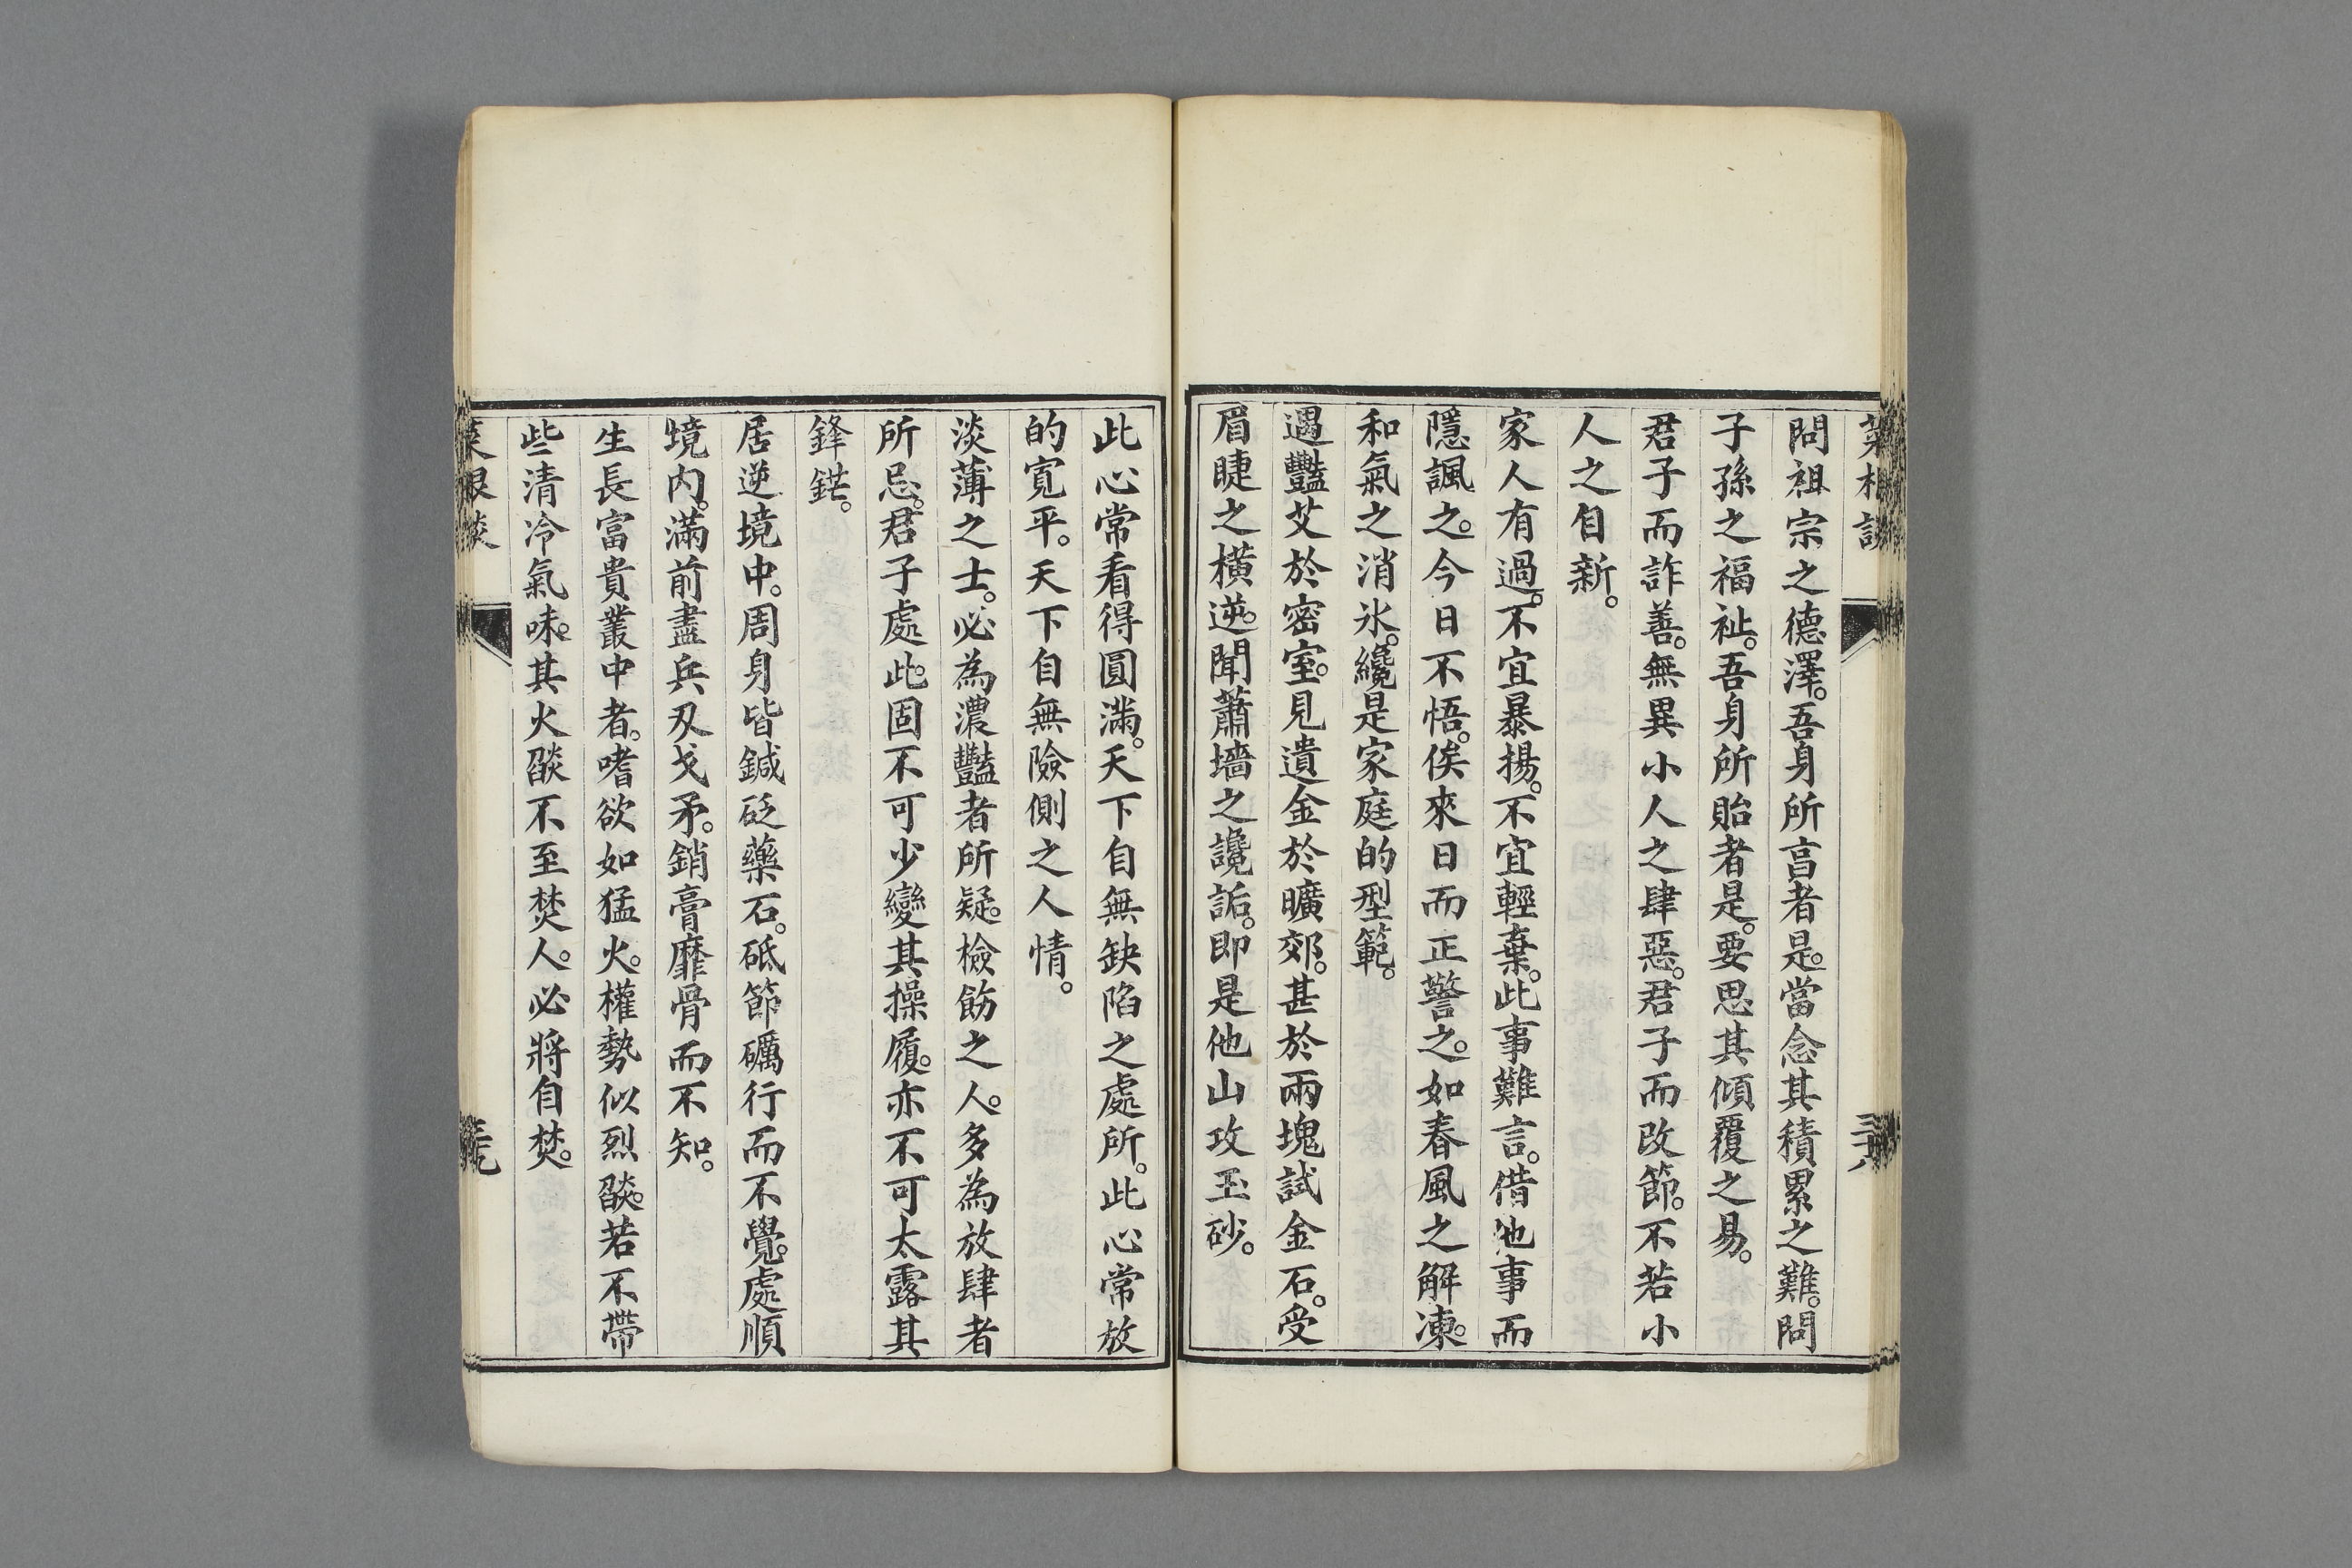 菜根談
三十八
問祖宗之德澤。吾身所亯者是。當念其積累之難。問
子孫之福祉。吾身所貽者是。要思其傾覆之易。
君子而詐善。無異小人之肆惡。君子而改節。不若小
人之自新。
家人有過。不宜暴揚。不宜輕棄。此事難言。借他事而
隱諷之。今日不悟。俟來日而正警之。如春風之解凍。
和氣之消氷。纔是家庭的型範。
遇豔艾於密室。見遺金於曠郊。甚於兩塊試金石。受
眉睫之橫逆。聞蕭墻之讒詬。即是他山攻玉砂。
此心常看得圓滿。天下自無缺陷之處所。此心常放
的寛平。天下自無險側之人情。
淡薄之士。必為濃豔者所疑。檢飭之人。多為放肆者
所忌。君子處此。固不可少變其操履。亦不可太露其
鋒鋩。
居逆境中。周身皆鍼砭藥石。砥節礪行而不覺。處順
境內。滿前盡兵刄戈矛。銷膏靡骨而不知。
生長富貴叢中者。嗜欲如猛火。權勢似烈燄。若不帶
些清冷氣味。其火燄不至焚人。必將自焚。
菜根談